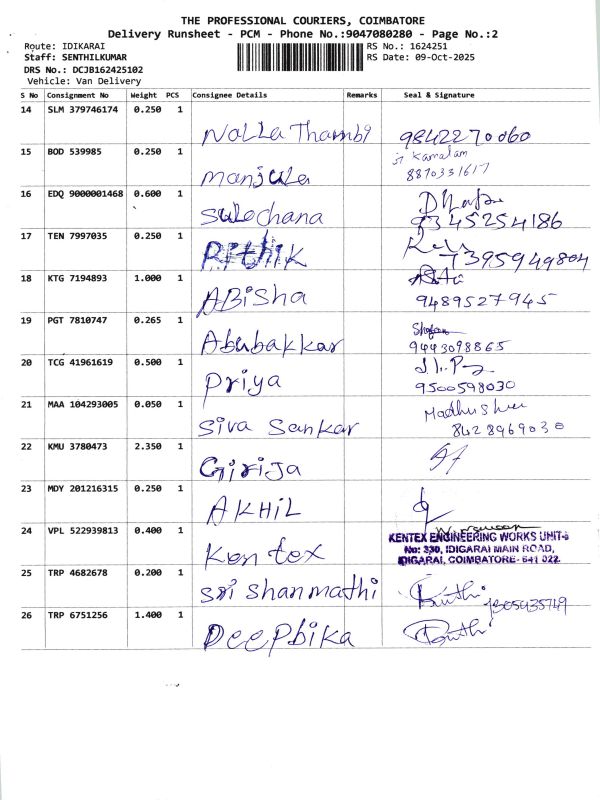 THE PROFESSIONAL COURIERS, COIMBATORE
Delivery Runsheet - PCM - Phone No.:9047080280 - Page No.:2
Route: IDIKARAI
RS No.: 1624251
Staff: SENTHILKUMAR
RS Date: 09-Oct-2025
DRS No.: DCJB162425102
Vehicle: Van Delivery
S No Consignment No Weight PCS Consignee Details Remarks Seal & Signature
14 SLM 379746174 0.250 1 Nalla Thambi 9842270060
15 BOD 539985 0.250 1 Manjula Kamalam
8870331617
16 EDQ 9000001468 0.600 1 Sulochana
9345254186
17 TEN 7997035 0.250 1 Rithik
7395949804
18 KTG 7194893 1.000 1 ABisha
9489527945
19 PGT 7810747 0.265 1 Abubakkar
9443098865
20 TCG 41961619 0.500 1 Priya
9500598030
21 MAA 104293005 0.050 1 Siva Sankar
8428969030
22 KMU 3780473 2.350 1 Girija
23 MDY 201216315 0.250 1 AKHIL
24 VPL 522939813 0.400 1 Kentex
KENTEX ENGINEERING WORKS UNIT-
No: 330, IDIGARAI MAIN ROAD,
IDIGARAI, COIMBATORE- 641 022.
25 TRP 4682678 0.200 1 Sri Shanmathi
26 TRP 6751256 1.400 1 DeePbika